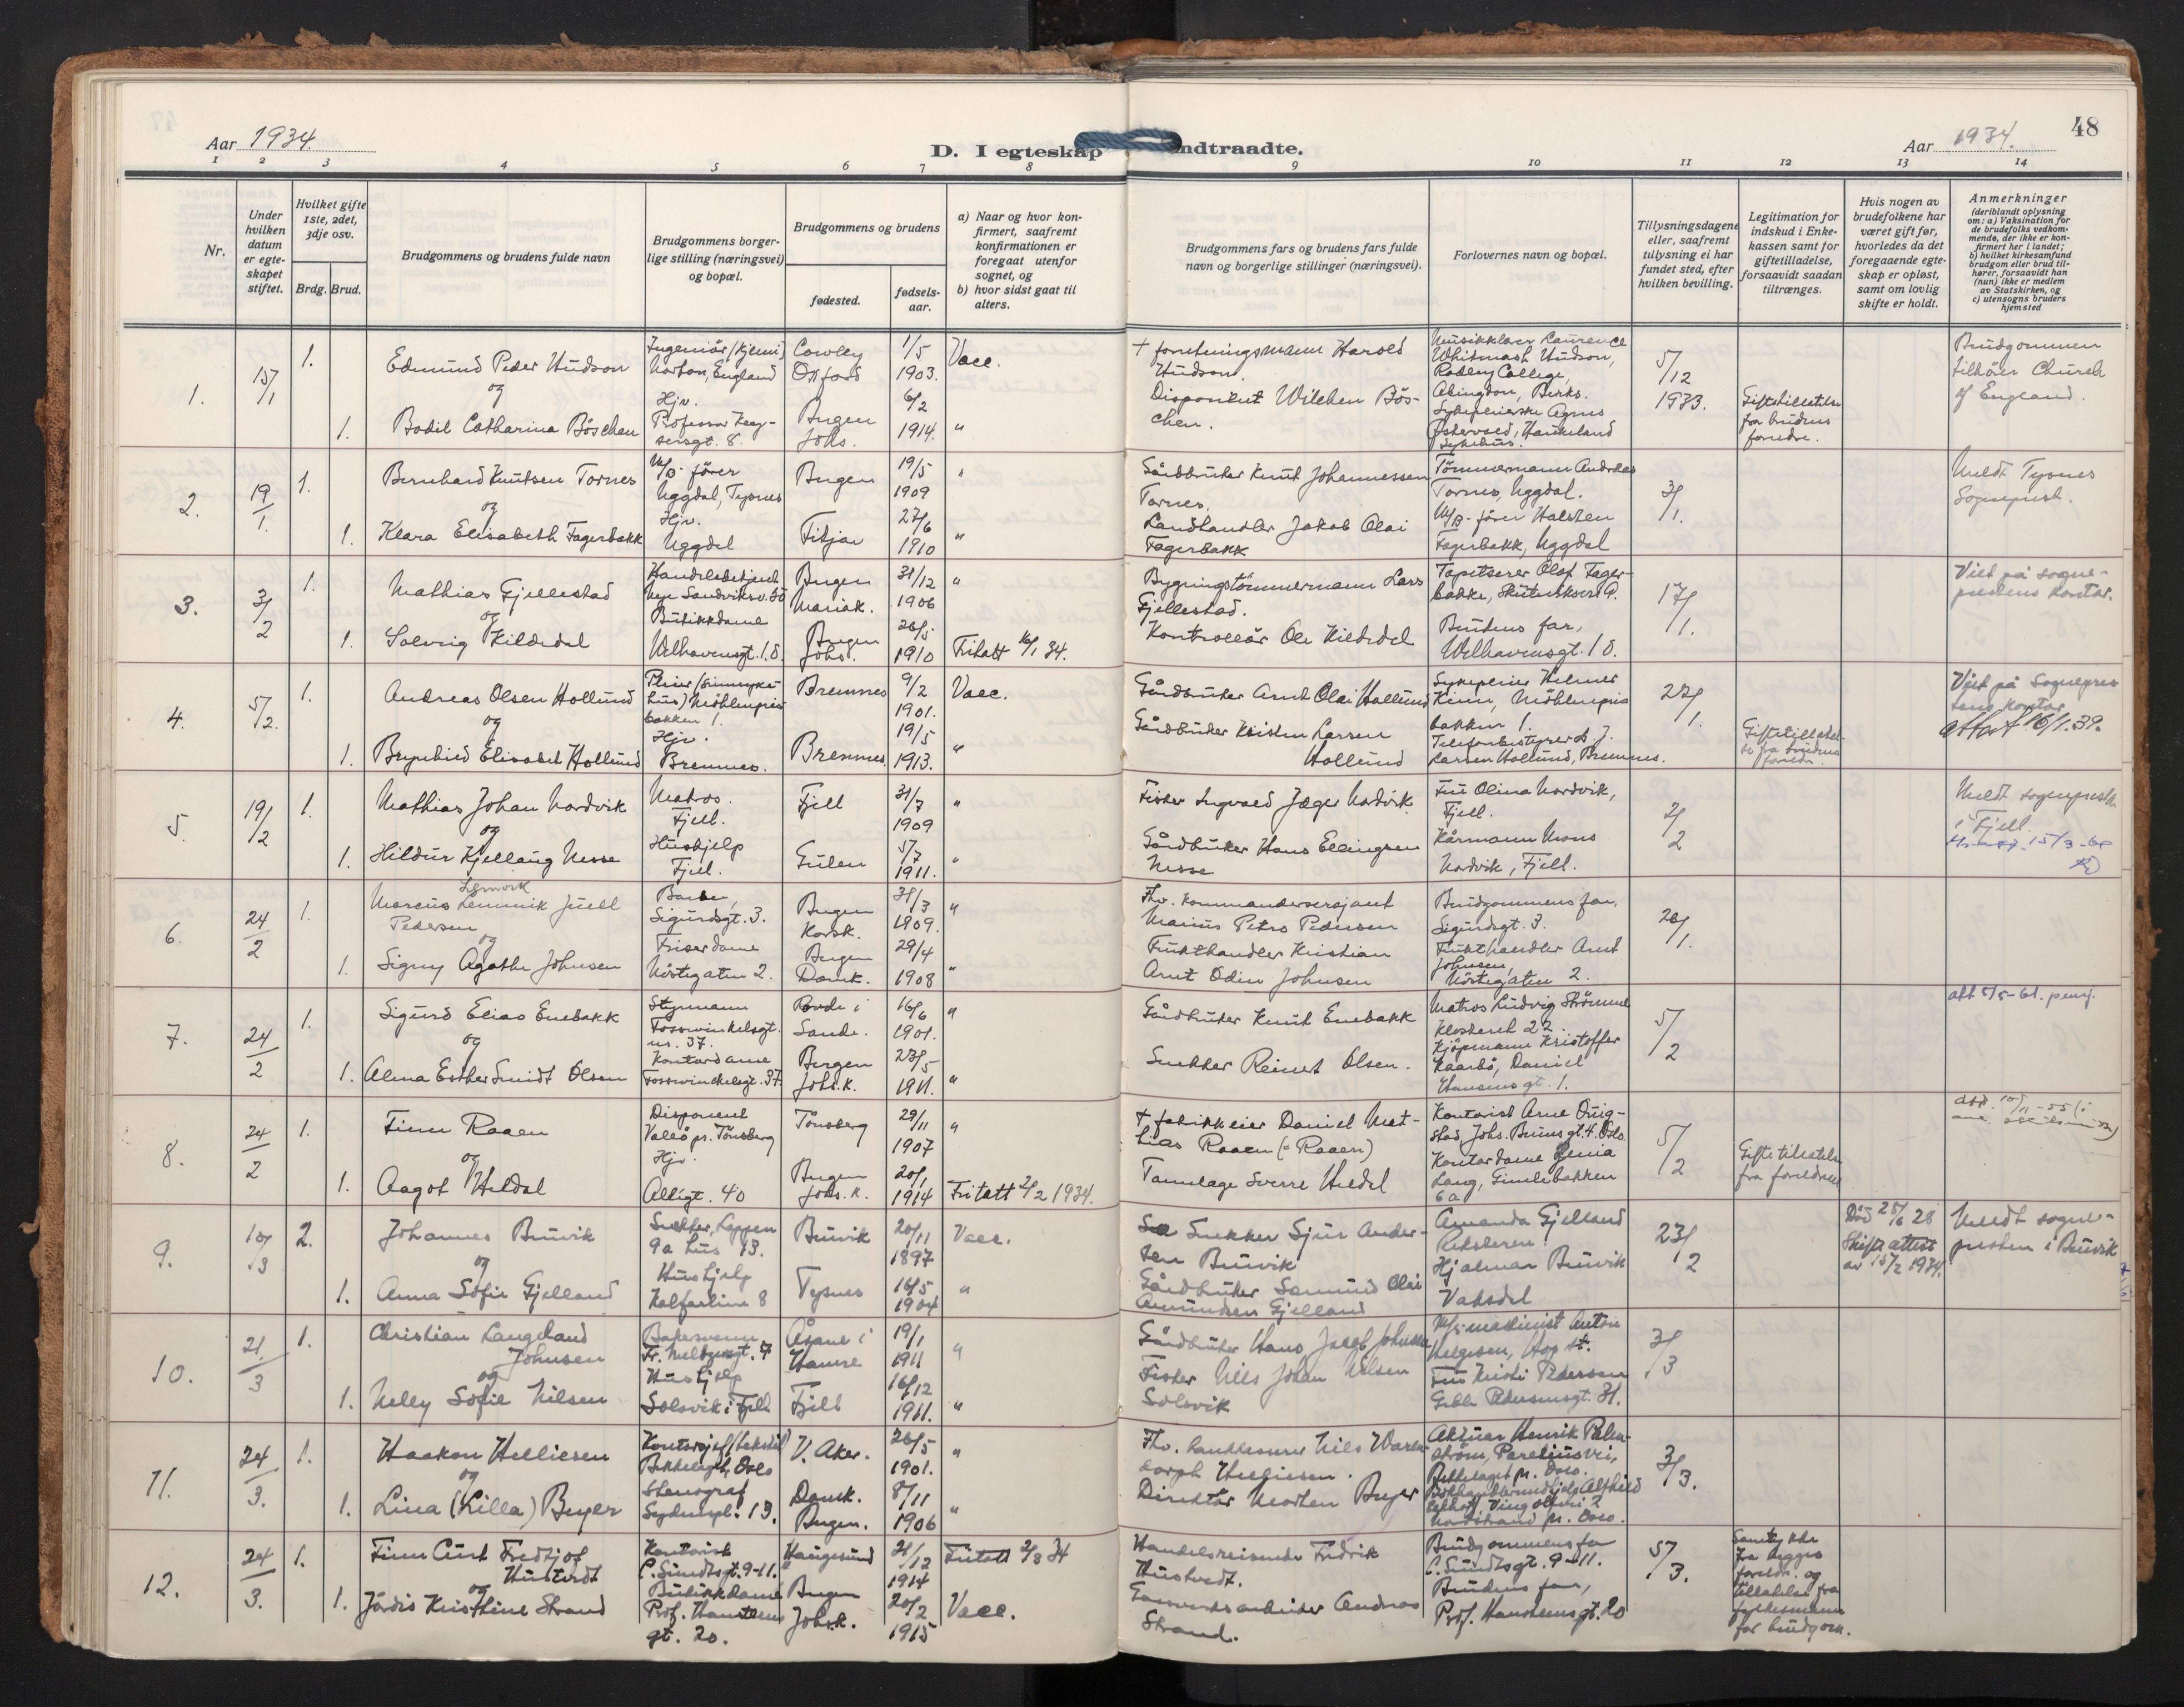 Aar 1934.
D. I egteskap indtraadte.
Aar 1934.
48
1 2 3 4 5 6 7 8 9 10 11 12 13 14
Nr.
Under hvilken datum er egteskapet stiftet.
Hvilket gifte 1ste, 2det, 3dje osv.
Brdg. Brud.
Brudgommens og brudens fulde navn
Brudgommens borgerlige stilling (næringsvei) og bopæl.
Brudgommens og brudens
fødested.
fødselsaar.
a) Naar og hvor konfirmert, saafremt konfirmationen er foregaat utenfor sognet, og
b) hvor sidst gaat til alters.
Brudgommens fars og brudens fars fulde navn og borgerlige stillinger (næringsvei).
Forlovernes navn og bopæl.
Tillysningsdagene eller, saafremt tillysning ei har fundet sted, efter hvilken bevilling.
Legitimation for indskud i Enkekassen samt for giftetilladelse, forsaavidt saadan tiltrænges.
Hvis nogen av brudefolkene har været gift før, hvorledes da det foregaaende egteskap er opløst, samt om lovlig skifte er holdt.
Anmerkninger
(deriblandt oplysning om: a) Vaksination for de brudefolks vedkommende, der ikke er konfirmert her i landet; b) hvilket kirkesamfund brudgom eller brud tilhører, forsaavidt han (hun) ikke er medlem av Statskirken, og c) utensogns bruders hjemsted
1. 15/1 1. Edmund Peder Hudson
og
1. Bodil Catharina Böschen
Ingeniör (kjemi) Norton, England
Hjv. Professor Keysersgt. 8.
Cowley Oxford 1/5 1903. Vacc.
Bergen Johs. 6/2 1914. "
+ forretningsmann Harold Hudson.
Disponent Wilchen Böschen.
Musikklærer Laurence Whitmash Hudson, Radley College, Abingdon, Berks.
Sykepleierske Agnes Östervold, Haukeland Sykehus.
5/12 1933.
Giftetillatelse fra brudens foreldre.
Brudgommen tilhörer Church of England.
2. 19/1. 1. Bernhard Knutsen Tornes
og
1. Klara Elisabeth Fagerbakk
M/B-förer Uggdal, Tysnes
Hjv. Uggdal
Bergen 19/5 1909 "
Fitjar 27/6 1910 "
Gårdbruker Knut Johannessen Tornes.
Landhandler Jakob Olai Fagerbakk
Tömmermann Andreas Tornes, Uggdal.
M/B-förer Halsten Fagerbakk, Uggdal
3/1.
Meldt Tysnes Sogneprest.
3. 3/2 1. Mathias Fjellestad
og
1. Solveig Kildedal
Handelsbetjent Nye Sandviksv. 36
Butikkdame Welhavensgt. 18.
Bergen Mariak. 31/12 1906 "
Bergen Johs. 26/5 1910 Fritatt 16/1 34.
Bygningstömmermann Lars Fjellestad.
Kontrollör Ole Kildedal
Tapetserer Olaf Fagerbakke, Skuteviksvei
Brudens far, Welhavensgt. 18.
17/1.
Viet på sogneprestens kontor.
4. 5/2. 1. Andreas Olsen Hollund
og
1. Brynhild Elisabet Hollund
Pleier (sinnsykehus) Möhlenprisbakken 1.
Hjv. Bremnes.
Bremnes 9/2 1901. Vacc.
Bremnes. 19/5 1913. "
Gårdbruker Arnt Olai Hollund
Gårdbruker Kristen Larsen Hollund
Sykepleier Helmer Kinn, Möhlenprisbakken 1.
Telefonbestyrer L. J. Larsen Hollund, Bremnes.
27/1.
Giftetillatelse fra brudens foreldre.
Viet på Sogneprestens kontor
attest 16/1. 39.
5. 19/2 1. Mathias Johan Nordvik
og
1. Hildur Kjellaug Nesse
Matros. Fjell.
Hushjelp Fjell.
Fjell 31/7 1909 "
Gulen 5/7 1911. "
Fisker Ingvald Jæger Nordvik
Gårdbruker Hans Ellingsen Nesse
Fru Olina Nordvik, Fjell.
Kårmann Mons Nordvik, Fjell.
2/2
Meldt sogneprest i Fjell.
15/3-60
6. 24/2 1. Marcus Lemvik Juell Pedersen
Lemvik
og
1. Signy Agathe Johnsen
Barber, Sigurdsgt. 3.
Friserdame Nöstegaten 2.
Bergen Korsk. 31/3 1909. "
Bergen Domk. 29/4 1908 "
Fhv. kommandersersjant Marius Petro Pedersen
Frukthandler Kristian Arnt Odin Johnsen
Brudgommens far, Sigurdsgt. 3.
Frukthandler Arnt Johnsen, Nöstegaten 2.
26/1.
7. 24/2 1. Sigurd Elias Enebakk
og
1. Alma Esther Smidt Olsen
Styrmann Fosswinkelsgt. nr. 37.
Kontordame Fosswinckelsgt. 37.
Rovde i Sande. 16/6 1901. "
Bergen Johs. k. 27/5 1911. "
Gårdbruker Knut Enebakk
Snekker Reinert Olsen.
Matros Ludvig Strömme Klosteret 22
Kjöpmann Kristoffer Kaarbö, Daniel Hansens gt. 1.
5/2
att 5/5-61. pensj.
8. 24/2 1. Finn Raaen
og
1. Aagot Heldal
Disponent Vallö pr. Tönsberg
Hjv. Allégt. 40
Tönsberg 29/11 1907 "
Bergen Johs. k. 20/1 1914 Fritatt 2/2 1934.
+ fabrikkeier Daniel Mathias Raaen (= Raaen)
Tannlæge Sverre Heldal
Kontorist Arne Ouigstad, Johs. Bruns gt. 4. Oslo.
Kontordame Lang, Gimlebakken 6a
5/2
Giftetillatelse fra foreldrene
9. 10/3 2. Johannes Bruvik
og
1. Anna Sofie Gjelland
Snekker, Leppen 9a hus 13.
Hushjelp Kalfarlien 8
Bruvik 20/11 1897 Vacc.
Tysnes 16/5 1904 "
Snekker Sjur Andersen Bruvik
Gårdbruker Samund Olai Amundsen Gjelland
Amanda Gjelland
Hjalmar Bruvik Vaksdal
23/2
Död 25/6 28
Skifteattest av 15/2 1934.
Meldt sognepresten i Bruvik
10. 21/3 1. Christian Langeland Johnsen
og
1. Nelly Sofie Nilsen
Bakersvenn Fr. Meltzersgt. 7
Hushjelp Solsvik i Fjell
Åsane i Hamre 19/1 1911 "
Fjell 16/12 1911. "
Gårdbruker Hans Jacob Johnsen
Fisker Nils Johan Nilsen Solsvik
M/s-maskinist Anton Helgesen, Hop st.
Fru Kristi Pedersen Geble Pedersensgt. 31.
3/3
11. 24/3. 1. Haakon Helliesen
og
1. Lina (Lilla) Beyer
Kontorsjef (tekstil) Bekkelaget, Oslo
Stenograf Sydnespl. 13.
V. Aker. 26/5 1901. "
Domk. Bergen. 8/11 1906 "
Fhv. landkasserer Nils Warendorph Helliesen.
Direktör Morten Beyer
Aktuar Henrik Palmström, Pareliusvei, Bekkelaget pr. Oslo.
Nordstrand pr. Oslo.
3/3.
12. 24/3. 1. Finn Curt Fredtjof Hustvedt
og
1. Jördis Kristhine Strand
Kontorist C. Sundtsgt. 9-11.
Butikkdame Prof. Hansteens gt. 20.
Haugesund 21/12 1914 Fritatt 2/3 34
Bergen Johs. k. 20/2 1915 Vacc.
Handelsreisende Fredrik Hustvedt.
Gassverksarbeider Andreas Strand.
Brudgommens far C. Sundtsgt. 9-11.
Brudens far, Prof. Hansteensgt. 20
5/3.
Samtykke fra begges foreldre og tillatelse fra fylkesmann for brudgom.